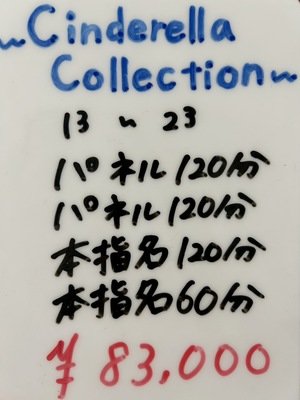 ~Cinderella
Collection~
13 ~ 23
パネル120分
パネル120分
本指名120分
本指名60分
¥83,000